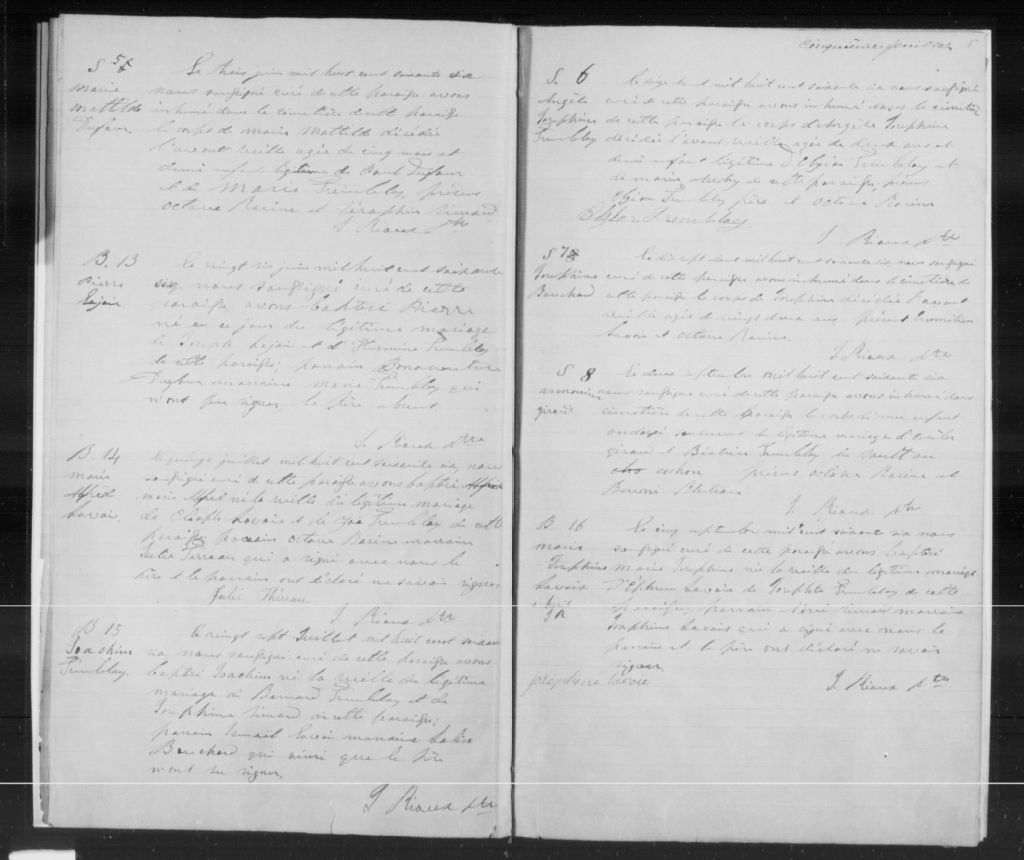 S 5
Marie
Mathilde
Dufour
Le trois juin mil huit cent soixante six
nous soussigné curé de cette paroisse avons
inhumé dans le cimetière de cette paroisse
le corps de marie Mathilde décédée
l'avant veille agée de cinq mois et
demi enfant légitime de Paul Dufour
et de Marie Tremblay, présens
Octave Racine et Séraphin Simard
J Rioux ptre
B. 13
Pierre
Lajoie
Le vingt six juin mil huit cent soixante
six, nous soussigné curé de cette
paroisse, avons baptisé Pierre
né en ce jour du légitime mariage
de Joseph Lajoie et d'Hermine Tremblay
de cette paroisse; parrain Bonaventure
Dufour marraine Marie Tremblay qui
n'ont pu signer, le père absent.
J. Rioux ptre
B. 14
marie
Alfred
Lavoie
Le quinze juillet mil huit cent soixante six, nous
soussigné curé de cette paroisse avons baptisé Alfred
marie Alfred né la veille du légitime mariage
de Cléophe Lavoie et de Tremblay de cette
paroisse, parrain octave Racine marraine
Julie Theriau qui a signé avec nous le
père et le parrain ont déclaré ne savoir signer
Julie Thireau
J. Rioux ptre
B 15
Joachim
Tremblay.
Le vingt sept Juillet mil huit cent soixante
six, nous soussigné curé de cette paroisse avons
baptisé Joachim né la veille du légitime
mariage de Bernard Tremblay et de
Josephine Simard de cette paroisse;
parrain Ismaël Lavoie marraine
Bouchard qui ainsi que le père
n'ont su signer.
J Rioux ptre
Cinquième feuillet 5
S. 6
Angèle
Josephine
Tremblay
Le aout mil huit cent soixante six nous soussigné
curé de cette paroisse avons inhumé dans le cimetière
de cette paroisse le corps d'Angèle Josephine
décédée l'avant veille agée de deux ans et
demi enfant légitime d'Elzéar Tremblay et
de marie de cette paroisse, présens
Elzéar Tremblay père et octave Racine
Tremblay
J Rioux ptre
S 7
Josephine
Bouchard
Le dix sept aout mil huit cent soixante six, nous soussigné
curé de cette paroisse avons inhumé dans le cimetière de
cette paroisse le corps de Josephine décédée l'avant
veille agée de vingt deux ans présens
Lavoie et octave Racine.
J Rioux ptre
S 8
anonime
girard
Le deux septembre mil huit cent soixante six
nous soussigné curé de cette paroisse avons inhumé dans
cimetière de cette paroisse le corps d'un enfant
ondoyé du légitime mariage d'
girard et Tremblay du
cochon présens octave Racine et
Benoni
J. Rioux ptre
B 16
marie
Josephine
Lavoie
Le cinq septembre mil cent soixante six nous
soussigné curé de cette paroisse avons baptisé
marie Josephine née la veille du légitime mariage
D'Ephrem Lavoie de Josephte Tremblay de cette
paroisse; parrain Simard marraine
Josephine Lavoie qui a signé avec nous le
parrain et le père ont déclaré ne savoir
signer
josephine lavoie
J. Rioux ptre